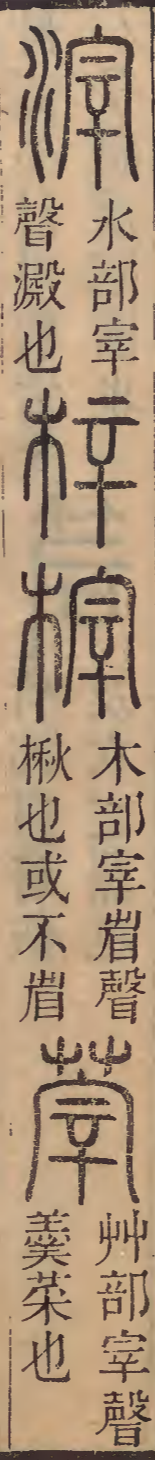 滓
水部宰
聲澱也
梓榟
木部宰省聲
楸也或不省
䔂
艸部宰聲
羹菜也